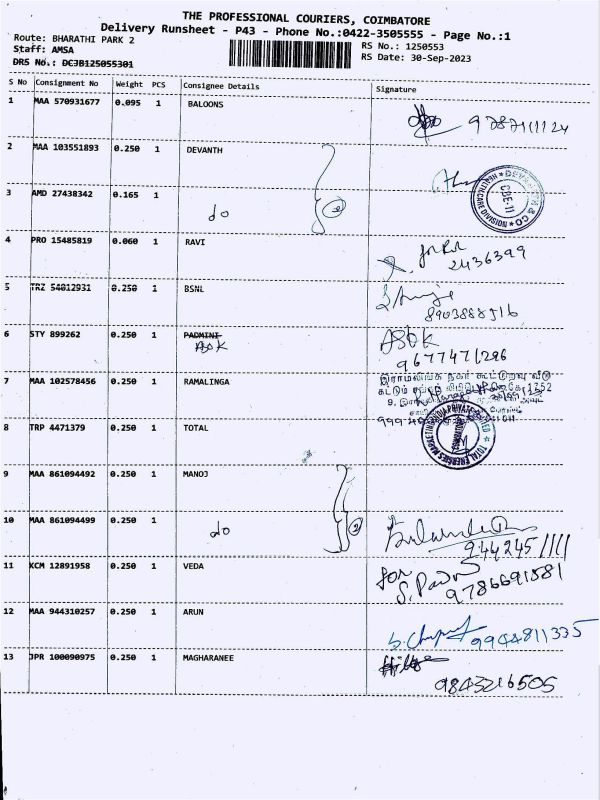 THE PROFESSIONAL COURIERS, COIMBATORE
Delivery Runsheet - P43 - Phone No.:0422-3505555 - Page No.:1
Route: BHARATHI PARK 2
RS No.: 1250553
Staff: AMSA
RS Date: 30-Sep-2023
DRS No.: DC3B125055301
S No Consignment No Weight PCS Consignee Details Signature
1 MAA 570931677 0.095 1 BALOONS
2 MAA 103551893 0.250 1 DEVANTH
3 AMD 27438342 0.165 1 do
4 PRO 15485819 0.060 1 RAVI
2436399
5 TRZ 54012931 0.250 1 BSNL
8903888516
6 STY 899262 0.250 1 PADMINI ASOK ASOK
9677471296
7 MAA 102578456 0.250 1 RAMALINGA
8 TRP 4471379 0.250 1 TOTAL
9 MAA 861094492 0.250 1 MANOJ
10 MAA 861094499 0.250 1 do
944245
11 KCM 12891958 0.250 1 VEDA for
9786691581
12 MAA 944310257 0.250 1 ARUN
9944811335
13 JPR 100090975 0.250 1 MAGHARANEE
9843216505